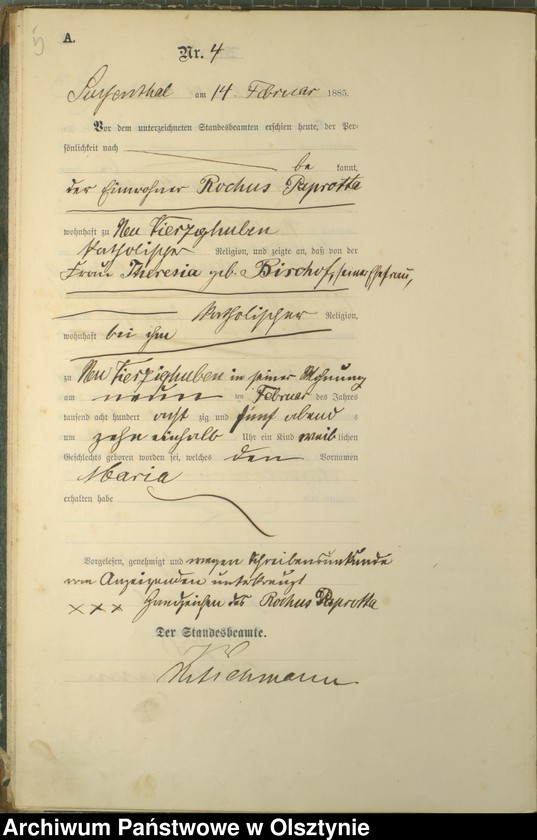 5
A.
Nr. 4
am 14. Februar 1885.
Vor dem unterzeichneten Standesbeamten erschien heute, der Per-
sönlichkeit nach
be kannt,
der Einwohner Rochus Paprotta
wohnhaft zu Neu Vierzighuben
katholischer Religion, und zeigte an, daß von der
Frau Theresia geb. Bischof, seiner Ehefrau,
katholischer Religion,
wohnhaft bei ihm
zu Neu Vierzighuben in seiner Wohnung
am neun ten Februar des Jahres
tausend acht hundert acht zig und fünf abend s
um zehn einhalb Uhr ein Kind weib lichen
Geschlechts geboren worden sei, welches den Vornamen
Maria
erhalten habe
Vorgelesen, genehmigt und wegen Schreibensunkunde
vom Anzeigenden unterkreuzt
××× Handzeichen des Rochus Paprotta
Der Standesbeamte.
Archiwum Państwowe w Olsztynie